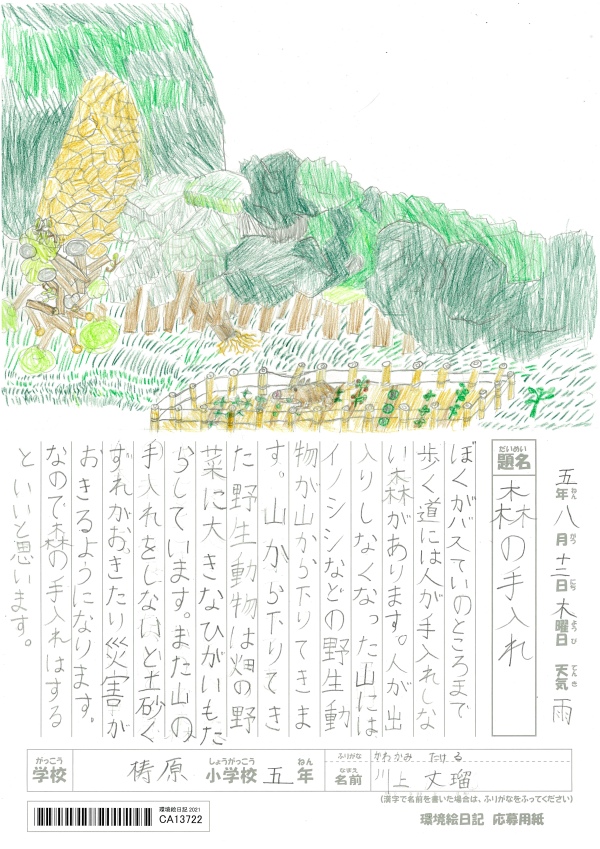 五年八月十二日木曜日 天気雨
ねん がつ にち ようび てんき
だいめい
題名 森の手入れ
ぼくがバスていのところまで
歩く道には人が手入れしな
い森があります。人が出
入りしなくなった山には
イノシシなどの野生動
物が山から下りてきま
す。山から下りてき
た野生動物は畑の野
菜に大きなひがいもた
らしています。また山の
手入れをしないと土砂く
ずれがおきたり災害が
おきるようになります。
なので森の手入れはする
といいと思います。
がっこう しょうがっこう ねん
学校 梼原 小学校 五 年
ふりがな かわかみ たける
なまえ
名前 川上 丈瑠
(漢字で名前を書いた場合は、ふりがなをふってください)
環境絵日記 2021
CA13722
環境絵日記 応募用紙